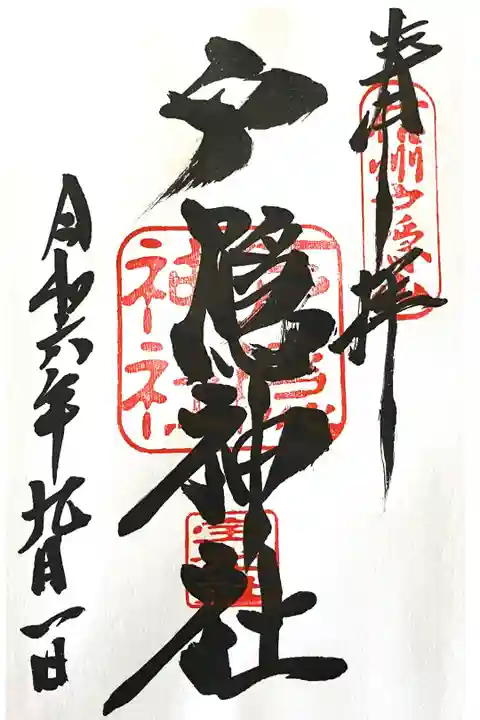 奉拝
戸隠神社
神社
令和六年九月一日